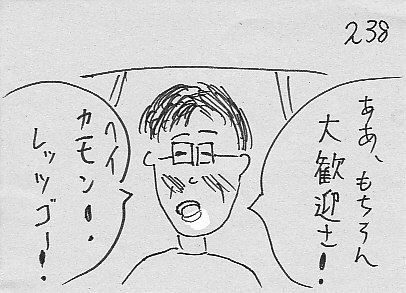 238
ああ、もちろん
大歓迎さ!
ヘイ
カモン!
レッツゴー!